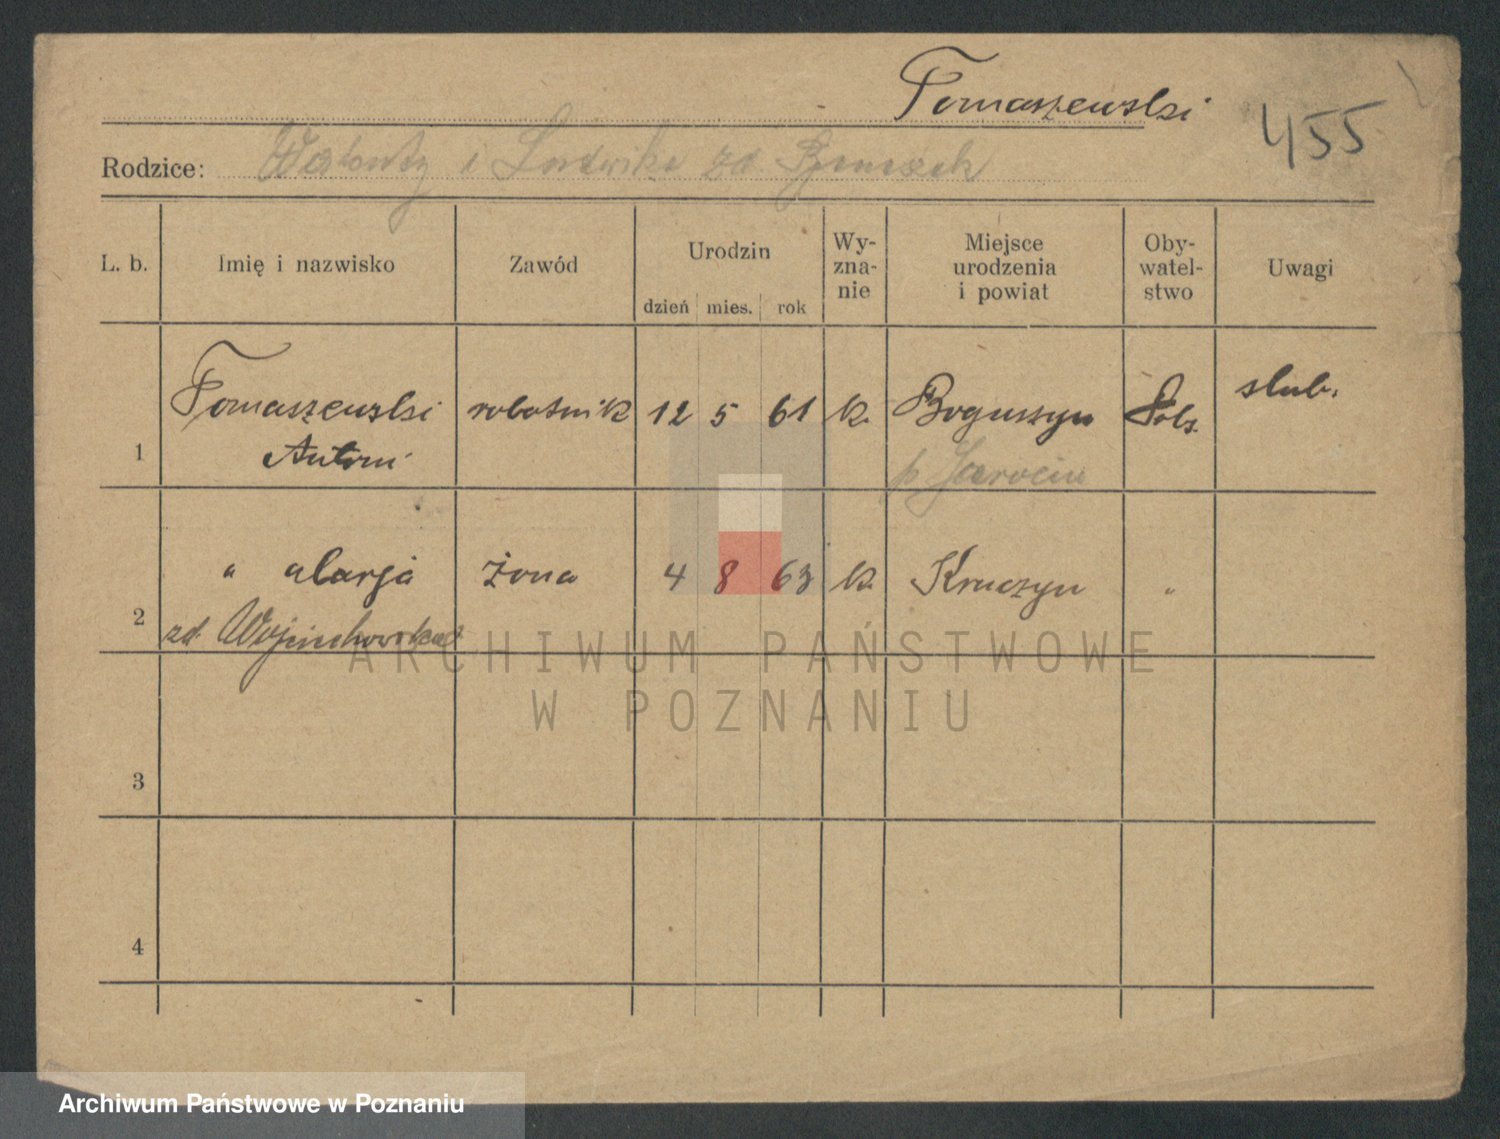 Tomaszewski
455
Rodzice: Walenty i Ludwika zd.
L. b. Imię i nazwisko Zawód Urodzin dzień mies. rok Wy-zna-nie Miejsce urodzenia i powiat Oby-watel-stwo Uwagi
1 Tomaszewski Antoni robotnik 12 5 61 k. Boguszyn p Jarocin Pols. slub.
2 " Marja żona 4 8 63 k. Kruczyn "
zd. Wojciechowska
3
4
ARCHIWUM PAŃSTWOWE
W POZNANIU
Archiwum Państwowe w Poznaniu